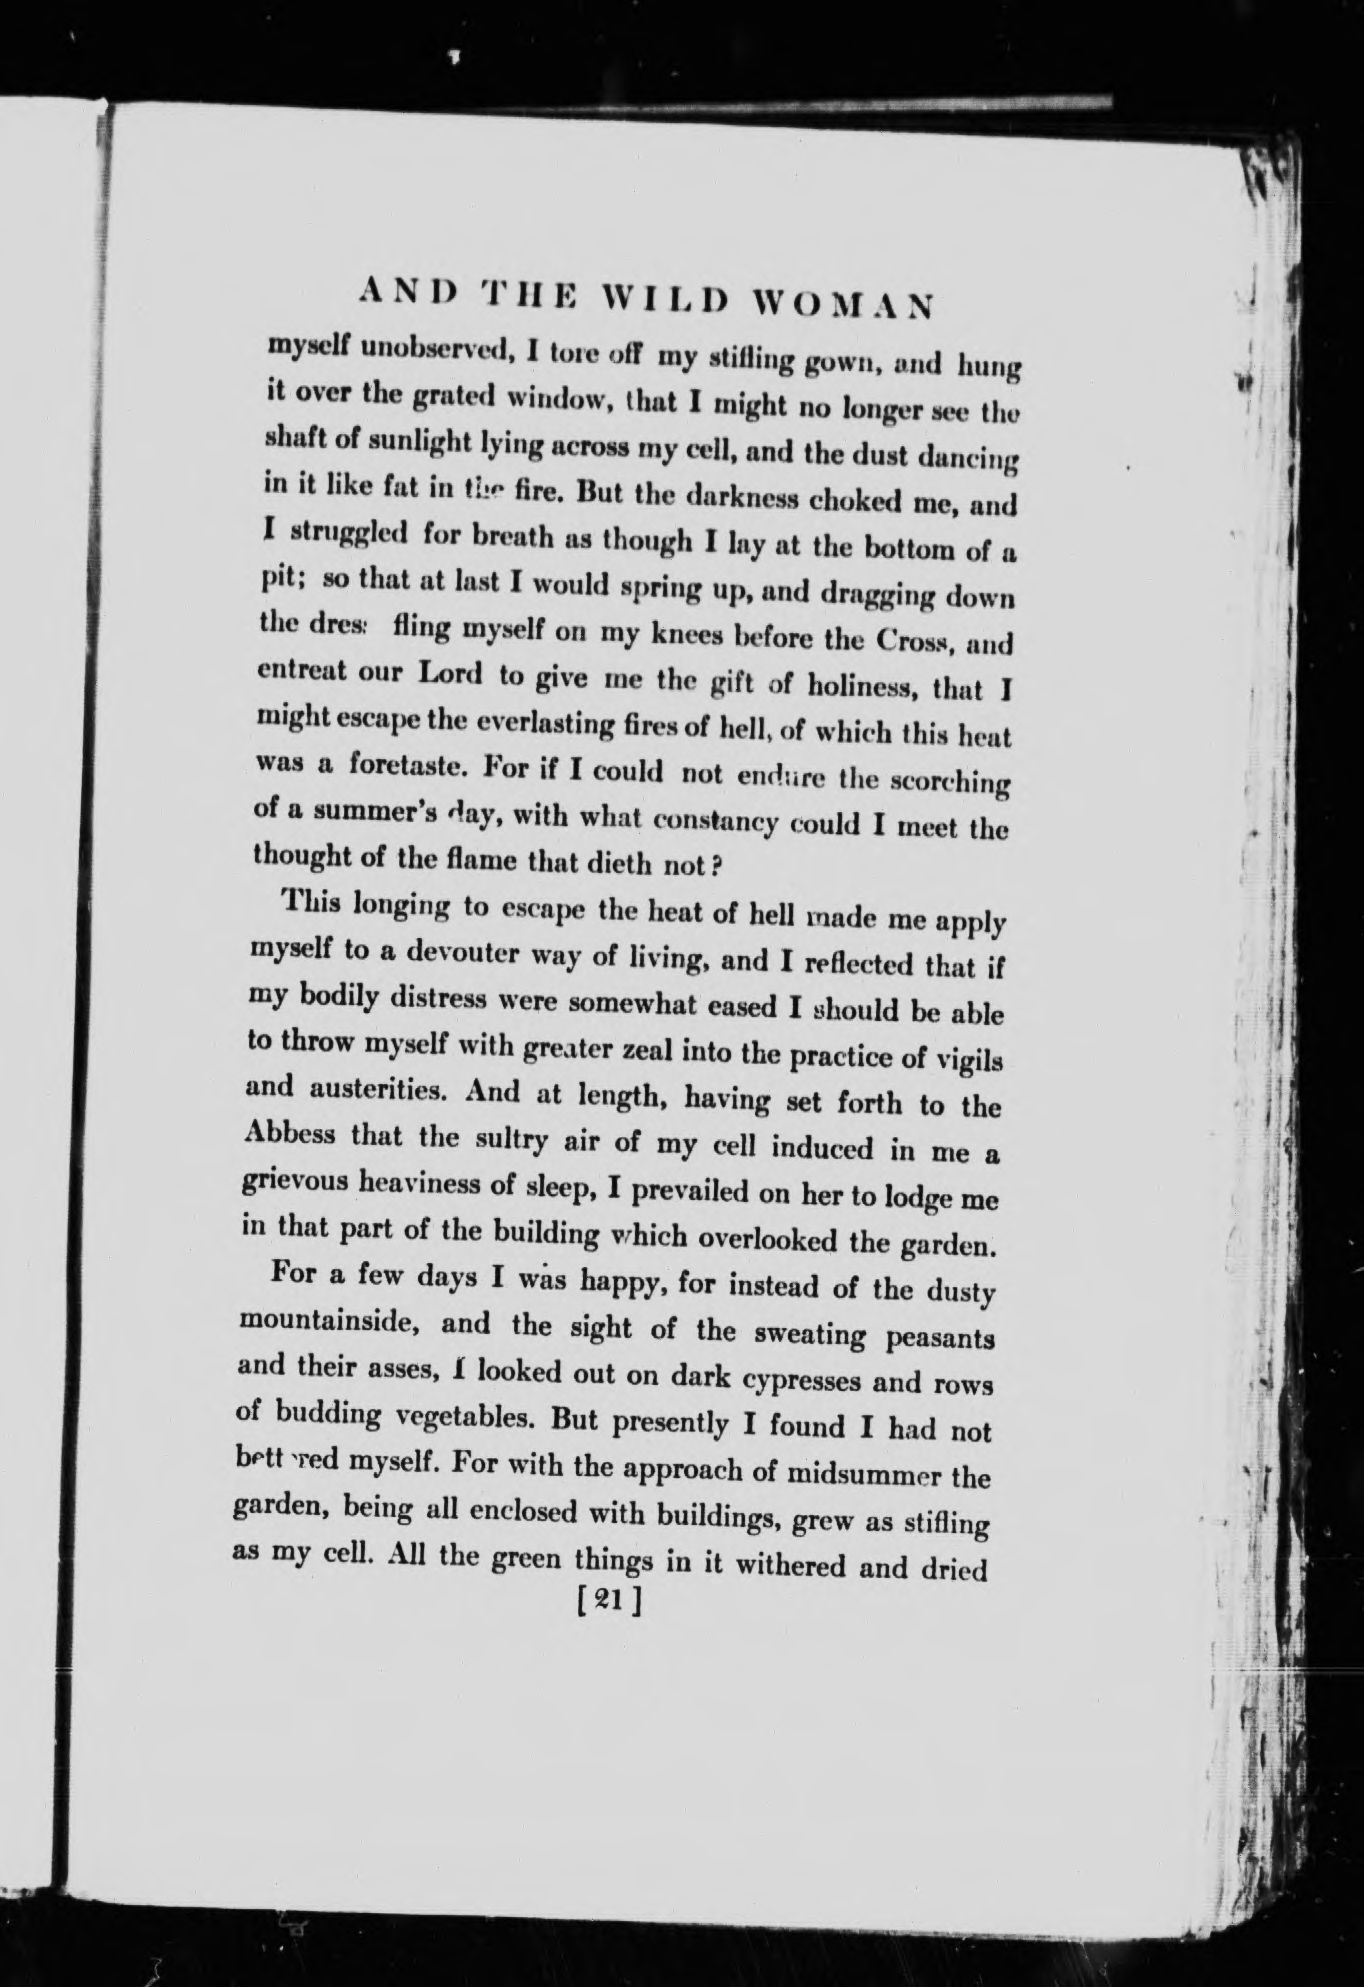 AND THE WILD WOMAN
myself unobserved, I tore off my stifling gown, and hung
it over the grated window, that I might no longer see the
shaft of sunlight lying across my cell, and the dust dancing
in it like fat in the fire. But the darkness choked me, and
I struggled for breath as though I lay at the bottom of a
pit; so that at last I would spring up, and dragging down
the dress fling myself on my knees before the Cross, and
entreat our Lord to give me the gift of holiness, that I
might escape the everlasting fires of hell, of which this heat
was a foretaste. For if I could not endure the scorching
of a summer's day, with what constancy could I meet the
thought of the flame that dieth not?
This longing to escape the heat of hell made me apply
myself to a devouter way of living, and I reflected that if
my bodily distress were somewhat eased I should be able
to throw myself with greater zeal into the practice of vigils
and austerities. And at length, having set forth to the
Abbess that the sultry air of my cell induced in me a
grievous heaviness of sleep, I prevailed on her to lodge me
in that part of the building which overlooked the garden.
For a few days I was happy, for instead of the dusty
mountainside, and the sight of the sweating peasants
and their asses, I looked out on dark cypresses and rows
of budding vegetables. But presently I found I had not
bettered myself. For with the approach of midsummer the
garden, being all enclosed with buildings, grew as stifling
as my cell. All the green things in it withered and dried
[21]